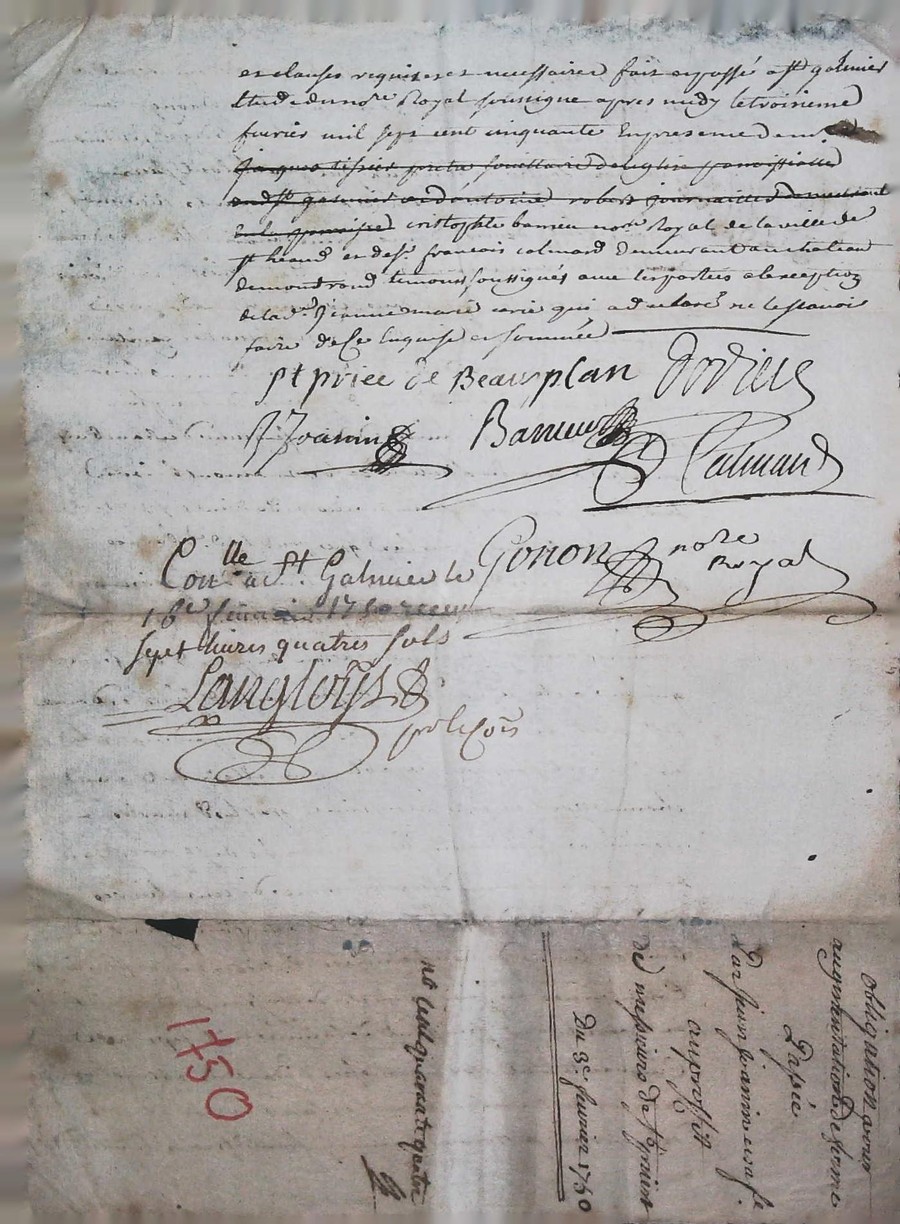 et clauses requises et necessaires fait et passé a st galmier
Etude du nore Royal soussigné apres midy le troisieme
fevrier mil sept cent cinquante En presence de
Jacques tissier pretre societaire de leglise parroissialle
dud st galmier et d antoine robert journaillier demeurant
cristophle barrieu nore Royal de la ville de
st heand et de sr francois calmard demeurant au chateau
de montrond temoins soussignés avec les parties a lexception
de lad. Jeanne marie qui a declaré ne le scavoir
faire de ce Enquise et sommée
St priee de Beauxplan
J Joanin Barrieu
Calmard
Conlle a St Galmier le Gonon nore Royal
16e fevrier 1750 receu
sept livres quatres sols
Langlois
pr le Cois
obligation avec
augmentation de ferme
Passée
Par Jean Joanin et sa fe
au profit
de messieurs de St
Du 3e fevrier 1750
no Cent quarante quatre
1750